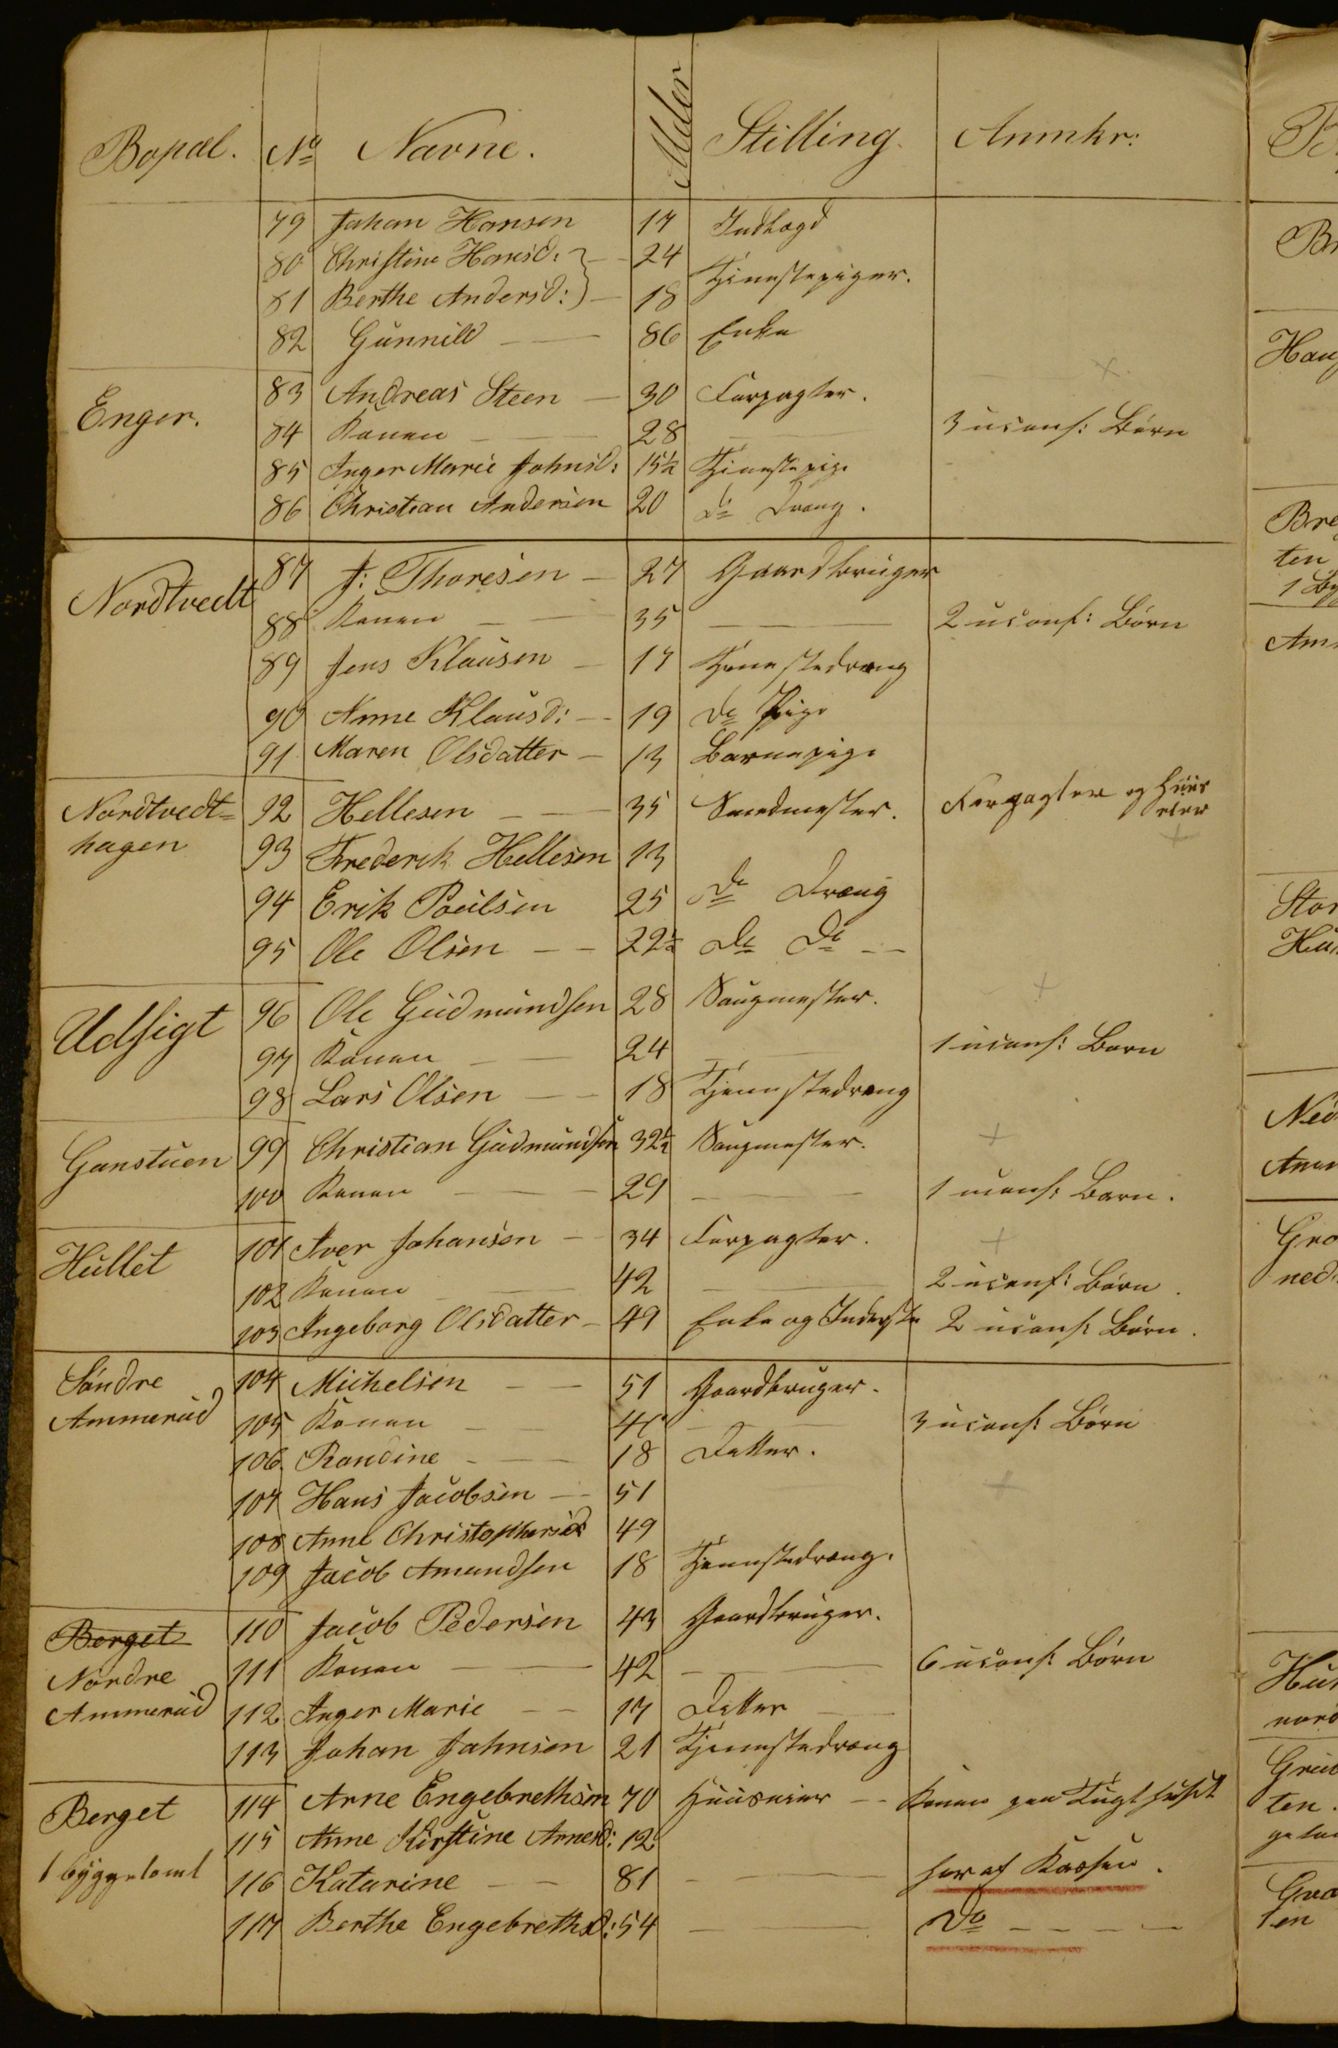 Bopæl. No Navne. Alder Stilling. Anmkr:
79 Johan Hansen 17 Indlagd
80 Christine Hansd: 24 Tjenestepiger.
81 Berthe Andersd: 18
82 Gunnild 86 Enke
Enger. 83 Andreas Steen 30 Forpagter.
84 Konen 28 3 uconf: Børn
85 Inger Marie Johnsd: 15½ Tjenstepige
86 Christian Andersen 20 do Dreng.
Nordtvedt 87 J: Thoresen 27 Gaardbruger
88 Konen 35 2 uconf: Børn
89 Jens Klausen 17 Tjenestedreng
90 Anne Klausd: 19 do Pige
91 Maren Olsdatter 13 Barnepige
Nordtvedt= 92 Hellesen 35 Smedmester. Forpagter og Huus
hagen 93 Frederik Hellesen 13
94 Erik Poulsen 25 do Dreng
95 Ole Olsen 22½ do do
Udsigt 96 Ole Gudmundsen 28 Saugmester.
97 Konen 24 1 uconf: Barn
98 Lars Olsen 18 Tjennstedreng
Ganstuen 99 Christian Gudmundsen 32½ Saugmester.
100 Konen 29 1 uconf: Barn.
Hullet 101 Iver Johansen 34 Forpagter.
102 Konen 42 2 uconf: Børn.
103 Ingeborg Olsdatter 49 Enke og Inderste 2 uconf: Børn.
Søndre 104 Michelsen 51 Gaardbruger.
Ammerud 105 Konen 3 uconf: Børn
106. Randine 18 Datter.
107 Hans Jacobsen 51
108 Anne Christophersd 49
109 Jacob Amundsen 18 Tjennstedreng.
Berget 110 Jacob Pedersen 43 Gaardbruger.
Nordre 111 Konen 42 6 uconf: Børn
Ammerud 112 Inger Marie 17 Datter
113 Johan Johnsen 21 Tjennstedreng
Berget 114 Arne Engebrethsen 70 Huuseier Konen paa Tugthuset
115 Anne Kirstine Arnesd: 12
1 byggeloml 116 Katarine 81 har af Kassen.
117 Berthe Engebrethsd: 54 Do
B
Br
Hau
Bre
ten
1 By
Am
Stor
Hu
Ned
Am
Gro
ned
Hu
nord
Gru
ten.
Gra
ten